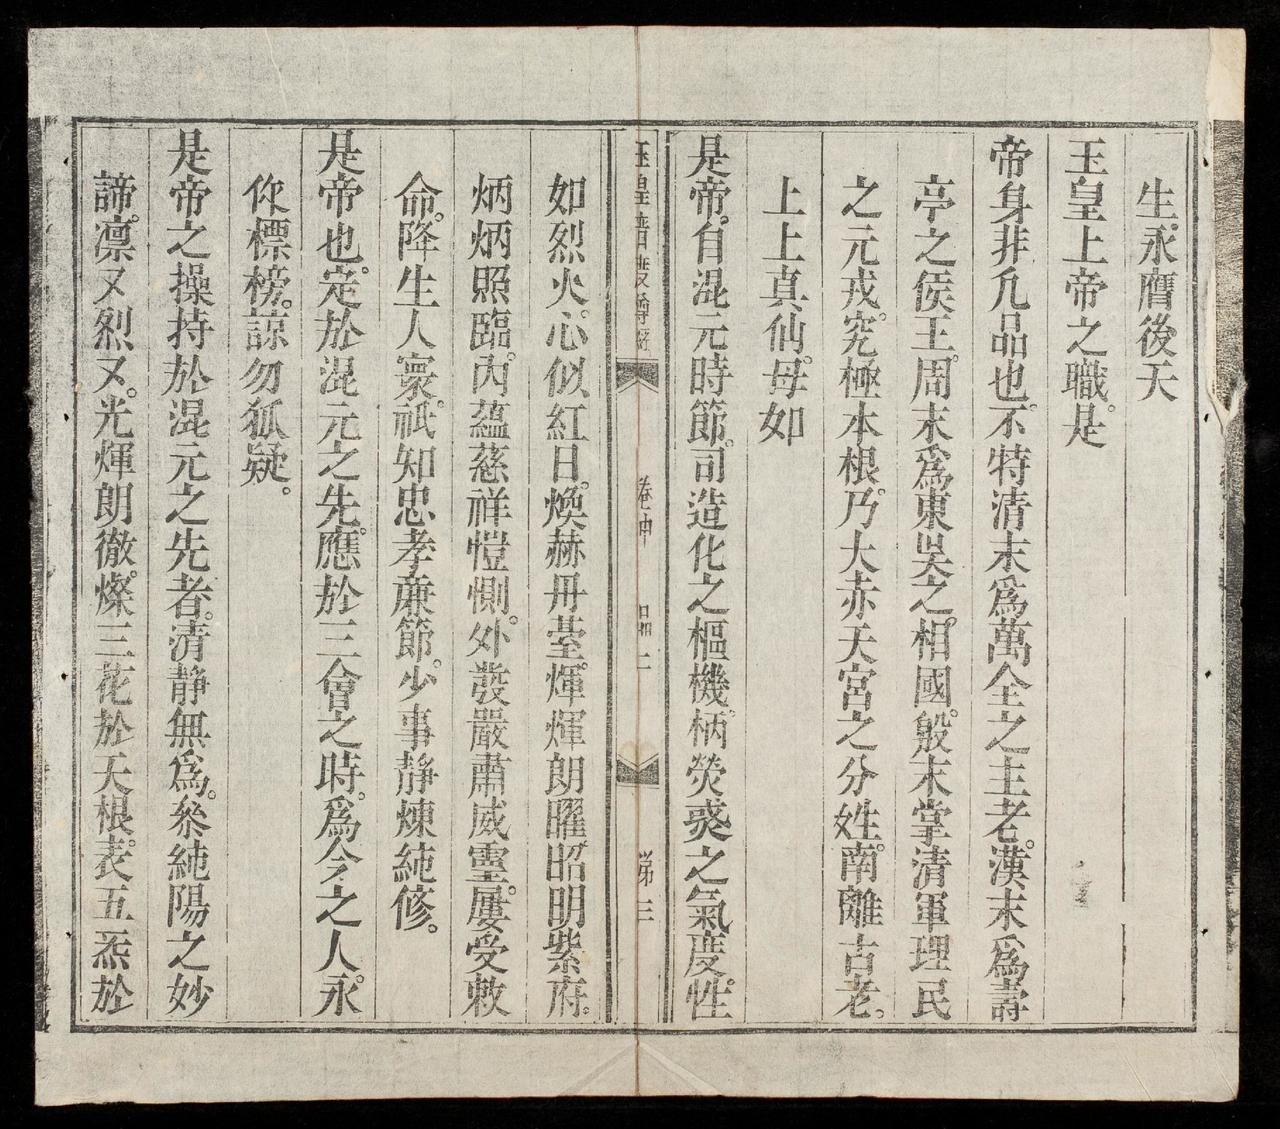 生。永膺後天
玉皇上帝之職。是
帝身非凡品也。不特清末爲萬全之主老。漢末爲壽
亭之侯王。周末爲東吳之相國。殷末掌清軍理民
之元戎。究極本根。乃大赤天宮之分姓。南離古老。
上上真仙。母如
是帝。自混元時節。司造化之樞機。柄熒惑之氣度。性
玉皇普度尊經
卷中
品二
第三
如烈火。心似紅日。煥赫丹臺。煇煇朗曜。昭明紫府。
炳炳照臨。內蘊慈祥愷惻。外發嚴肅威靈。屢受敕
命。降生人寰。祇知忠孝廉節。少事靜煉純修。
是帝也。定於混元之先。應於三會之時。爲今之人。永
作標榜。諒勿狐疑。
是帝之操持於混元之先者。清靜無爲。叅純陽之妙
諦。凛又烈又。光煇朗徹。燦三花於天根。表五炁於